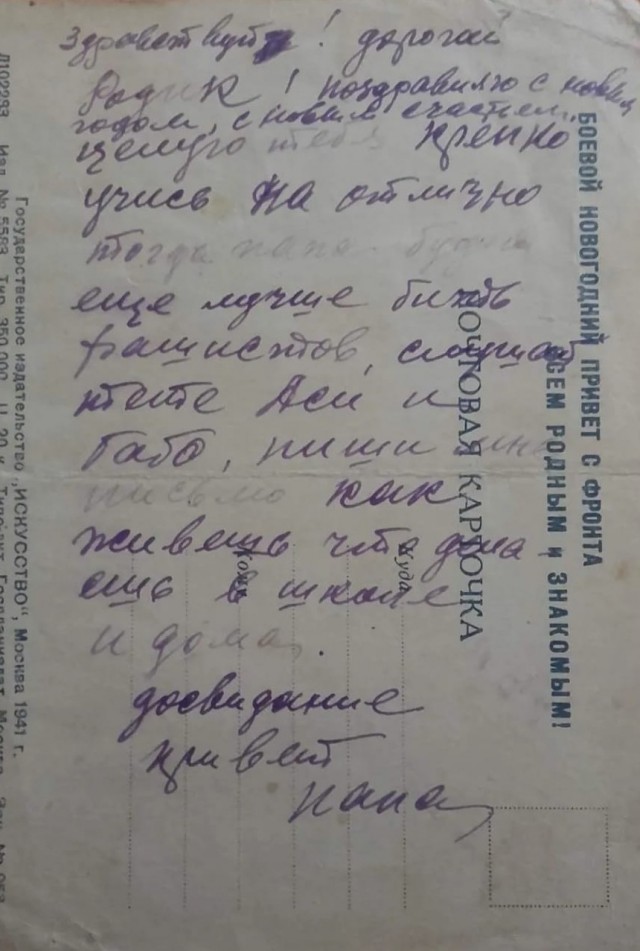 Здравствуйте! дорогой
Родик! поздравляю с новым
годом, с новым счастьем,
целую тебя крепко
учись на отлично
тогда папа будет
еще лучше бить
фашистов, слушай
тете Аси и
бабо, пиши мне
письмо как
живешь что дела
ешь в школе
и дома.
досвидание
привет
папа
БОЕВОЙ НОВОГОДНИЙ ПРИВЕТ С ФРОНТА
ВСЕМ РОДНЫМ и ЗНАКОМЫМ!
ПОЧТОВАЯ КАРТОЧКА
Куда
Кому
Государственное издательство „ИСКУССТВО", Москва 1941 г.
Л102283 Изд. № 5583 Тир. 350.000 Ц. 20 к.